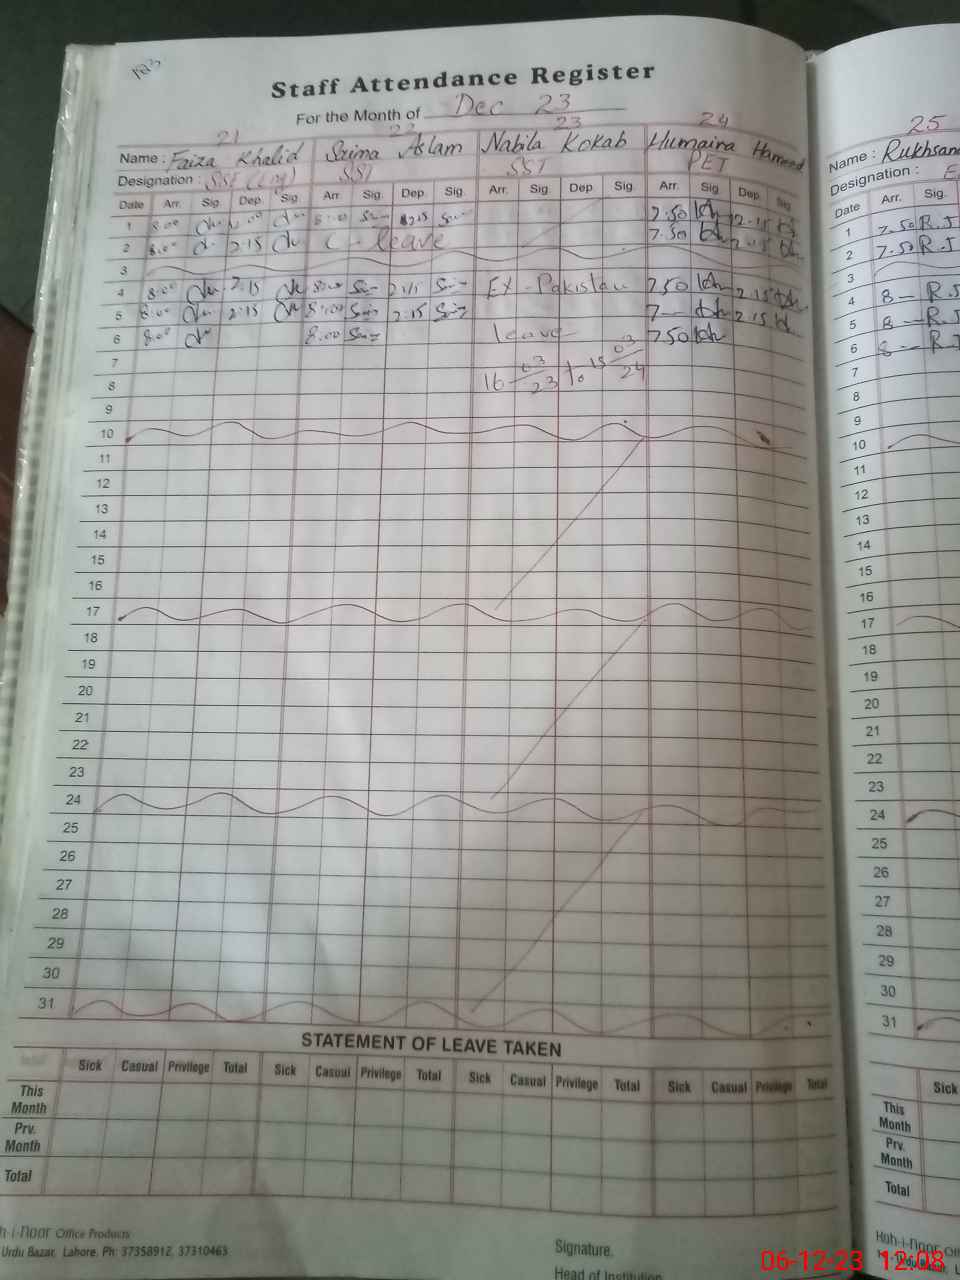 123
Staff Attendance Register
For the Month of Dec 23
21 22 23 24
Name : Faiza Khalid Saima Aslam Nabila Kokab Humaira Hameed
Designation : SST SST PET
Date Arr. Sig. Dep. Sig Arr. Sig. Dep. Sig. Arr. Sig Dep Sig. Arr. Sig Dep. Sig.
1 8.00 8:00 7.50 12.15
2 8.00 2.15 C - leave 7.50 2.15
3
4 8.00 2.15 8.00 2.15 Ex - Pakistan 7.50 2.15
5 8.00 2.15 8:00 2.15 7 2.15
6 8.00 8.00 leave 7.50
7
8 16 03/23 to 15 03/24
9
10
11
12
13
14
15
16
17
18
19
20
21
22
23
24
25
26
27
28
29
30
31
STATEMENT OF LEAVE TAKEN
Sick Casual Privilege Total Sick Casual Privilege Total Sick Casual Privilege Total Sick Casual Privilege Total
This Month
Prv. Month
Total
h-i-noor Office Products
Urdu Bazar, Lahore. Ph: 37358912, 37310463
Signature.
Head of Institution
25
Name : Rukhsan
Designation :
Date Arr. Sig.
1 7.50 R.J
2 7.50 R.J
3
4 8 - R.J
5 8 - R.J
6 8 - R.J
7
8
9
10
11
12
13
14
15
16
17
18
19
20
21
22
23
24
25
26
27
28
29
30
31
Sick
This Month
Prv. Month
Total
Koh-i-noor
06-12-23 12:08